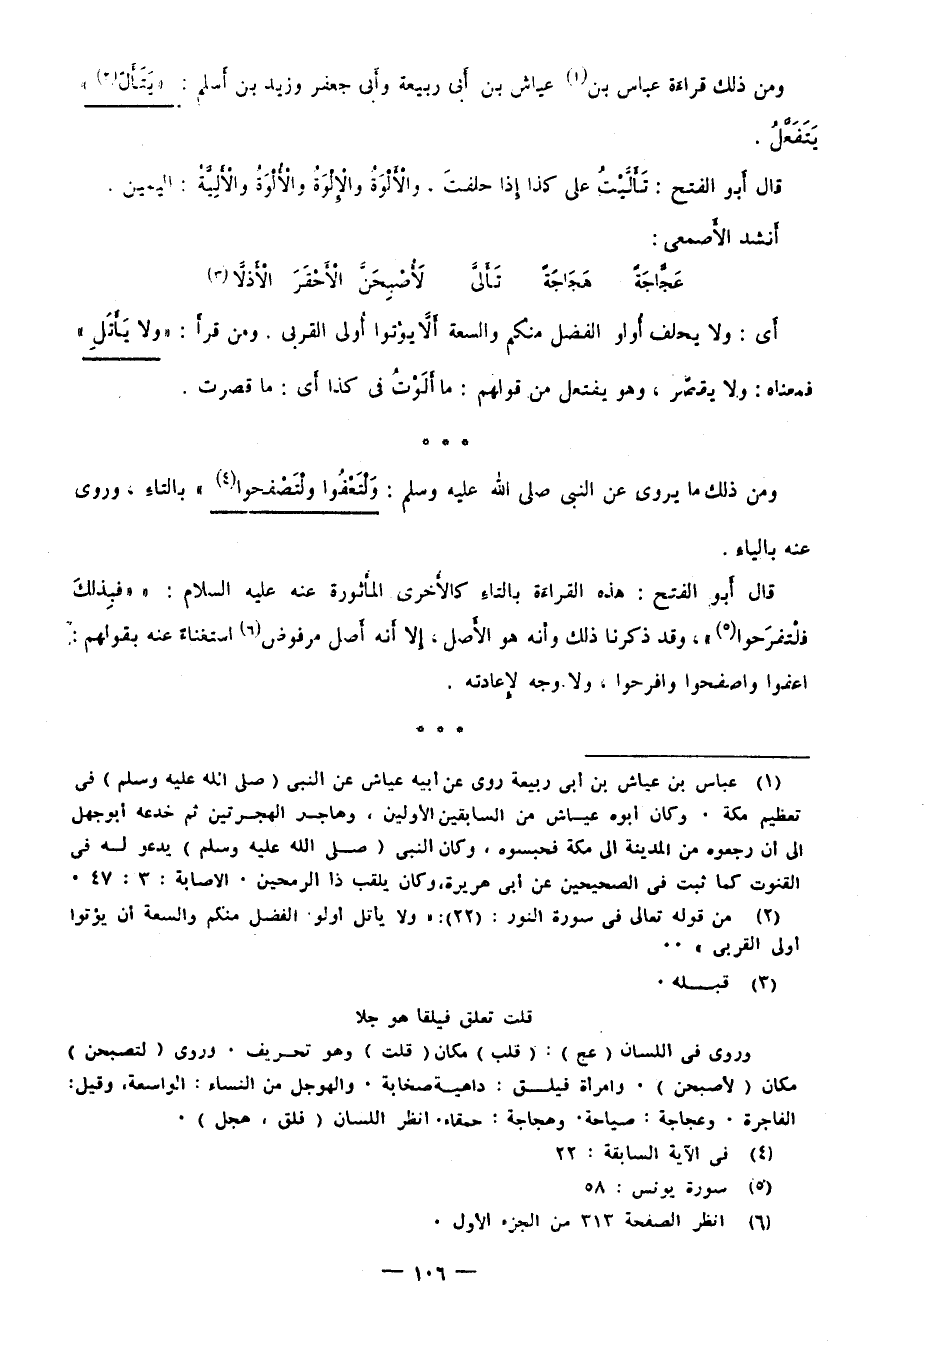 ومن ذلك قراءة عباس بن(١) عياش بن أبى ربيعة وأبى جعفر وزيد بن أسلم : « يَتَأَلَّ(٢) »
يَتَفَعَّلُ .
قال أبو الفتح : تَأَلَّيْتُ على كذا إذا حلفتَ . والْأَلْوَةُ والْإِلْوَةُ والْأُلْوَةُ والْأَلِيَّةُ : اليمين .
أنشد الأصمعى :
عَجَّاجَةٌ هَجَاجَةٌ تَأَلَّى لَأُصْبِحَنَّ الْأَحْقَرَ الْأَذلَّا(٣)
أى : ولا يحلف أُولو الفضل منكم والسعة أَلَّا يؤتوا أُولى القربى . ومن قرأ : « ولا يَأْتَلِ »
فمعناه : ولا يقصِّر ، وهو يفتعل من قولهم : ما أَلَوْتُ فى كذا أى : ما قصرت .
* * *
ومن ذلك ما يروى عن النبى صلى الله عليه وسلم : وَلْتَعْفُوا ولْتَصْفحوا(٤) » بالتاء ، وروى
عنه بالياء .
قال أبو الفتح : هذه القراءة بالتاء كالأُخرى المأْثورة عنه عليه السلام : « « فبِذلكَ
فلْتفرَحوا(٥) » ، وقد ذكرنا ذلك وأنه هو الأَصل ، إلا أنه أصل مرفوض(٦) استغناءً عنه بقولهم :
اعفوا واصفحوا وافرحوا ، ولا وجه لإعادته .
* * *
(١) عباس بن عياش بن أبى ربيعة روى عن أبيه عياش عن النبى ( صلى الله عليه وسلم ) فى
تعظيم مكة . وكان أبوه عياش من السابقين الأولين ، وهاجر الهجرتين ثم خدعه أبوجهل
الى أن رجعوه من المدينة الى مكة فحبسوه ، وكان النبى ( صلى الله عليه وسلم ) يدعو له فى
القنوت كما ثبت فى الصحيحين عن أبى هريرة، وكان يلقب ذا الرمحين . الاصابة : ٣ : ٤٧ .
(٢) من قوله تعالى فى سورة النور : (٢٢): « ولا ياتل أولو الفضل منكم والسعة أن يؤتوا
أولى القربى » ..
(٣) قبله .
قلت تعلق فيلقا هو جلا
وروى فى اللسان ( عج ) : ( قلب ) مكان ( قلت ) وهو تحريف . وروى ( لتصبحن )
مكان ( لأصبحن ) . وامرأة فيلق : داهية صخابة . والهوجل من النساء : الواسعة، وقيل:
الفاجرة . وعجاجة : صياحة . وهجاجة : حمقاء . انظر اللسان ( فلق ، هجل ) .
(٤) فى الآية السابقة : ٢٢
(٥) سورة يونس : ٥٨
(٦) انظر الصفحة ٣١٣ من الجزء الأول .
— ١٠٦ —